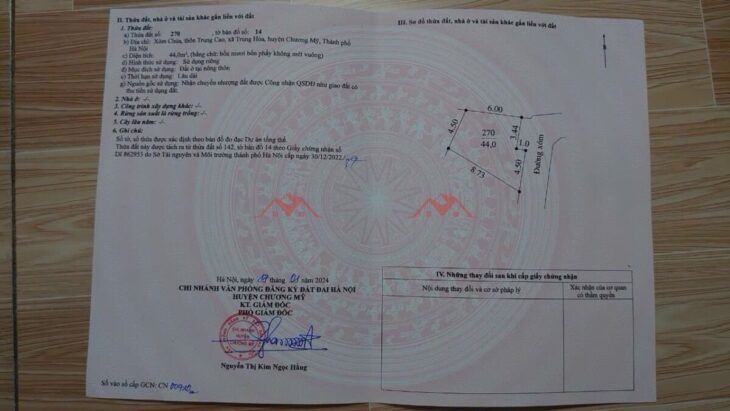 II. Thửa đất, nhà ở và tài sản khác gắn liền với đất
1. Thửa đất:
a) Thửa đất số: 270 , tờ bản đồ số: 14
b) Địa chỉ: Xóm Chùa, thôn Trung Cao, xã Trung Hòa, huyện Chương Mỹ, Thành phố
Hà Nội
c) Diện tích: 44,0m², (bằng chữ: bốn mươi bốn phẩy không mét vuông)
d) Hình thức sử dụng: Sử dụng riêng
đ) Mục đích sử dụng: Đất ở tại nông thôn
e) Thời hạn sử dụng: Lâu dài
g) Nguồn gốc sử dụng: Nhận chuyển nhượng đất được Công nhận QSDĐ như giao đất có
thu tiền sử dụng đất.
2. Nhà ở: -/-
3. Công trình xây dựng khác: -/-
4. Rừng sản xuất là rừng trồng: -/-
5. Cây lâu năm: -/-
6. Ghi chú:
Số tờ, số thửa được xác định theo bản đồ đo đạc Dự án tổng thể.
Thửa đất này được tách ra từ thửa đất số 142, tờ bản đồ 14 theo Giấy chứng nhận số
DI 862955 do Sở Tài nguyên và Môi trường thành phố Hà Nội cấp ngày 30/12/2022
Hà Nội, ngày 19 tháng 01 năm 2024
CHI NHÁNH VĂN PHÒNG ĐĂNG KÝ ĐẤT ĐAI HÀ NỘI
HUYỆN CHƯƠNG MỸ
KT. GIÁM ĐỐC
PHÓ GIÁM ĐỐC
Nguyễn Thị Kim Ngọc Hằng
Số vào sổ cấp GCN: CN
III. Sơ đồ thửa đất, nhà ở và tài sản khác gắn liền với đất
6.00
4.50
3.44
270
44,0
1.0
4.50
8.73
Đường xóm
IV. Những thay đổi sau khi cấp giấy chứng nhận
Nội dung thay đổi và cơ sở pháp lý
Xác nhận của cơ quan
có thẩm quyền